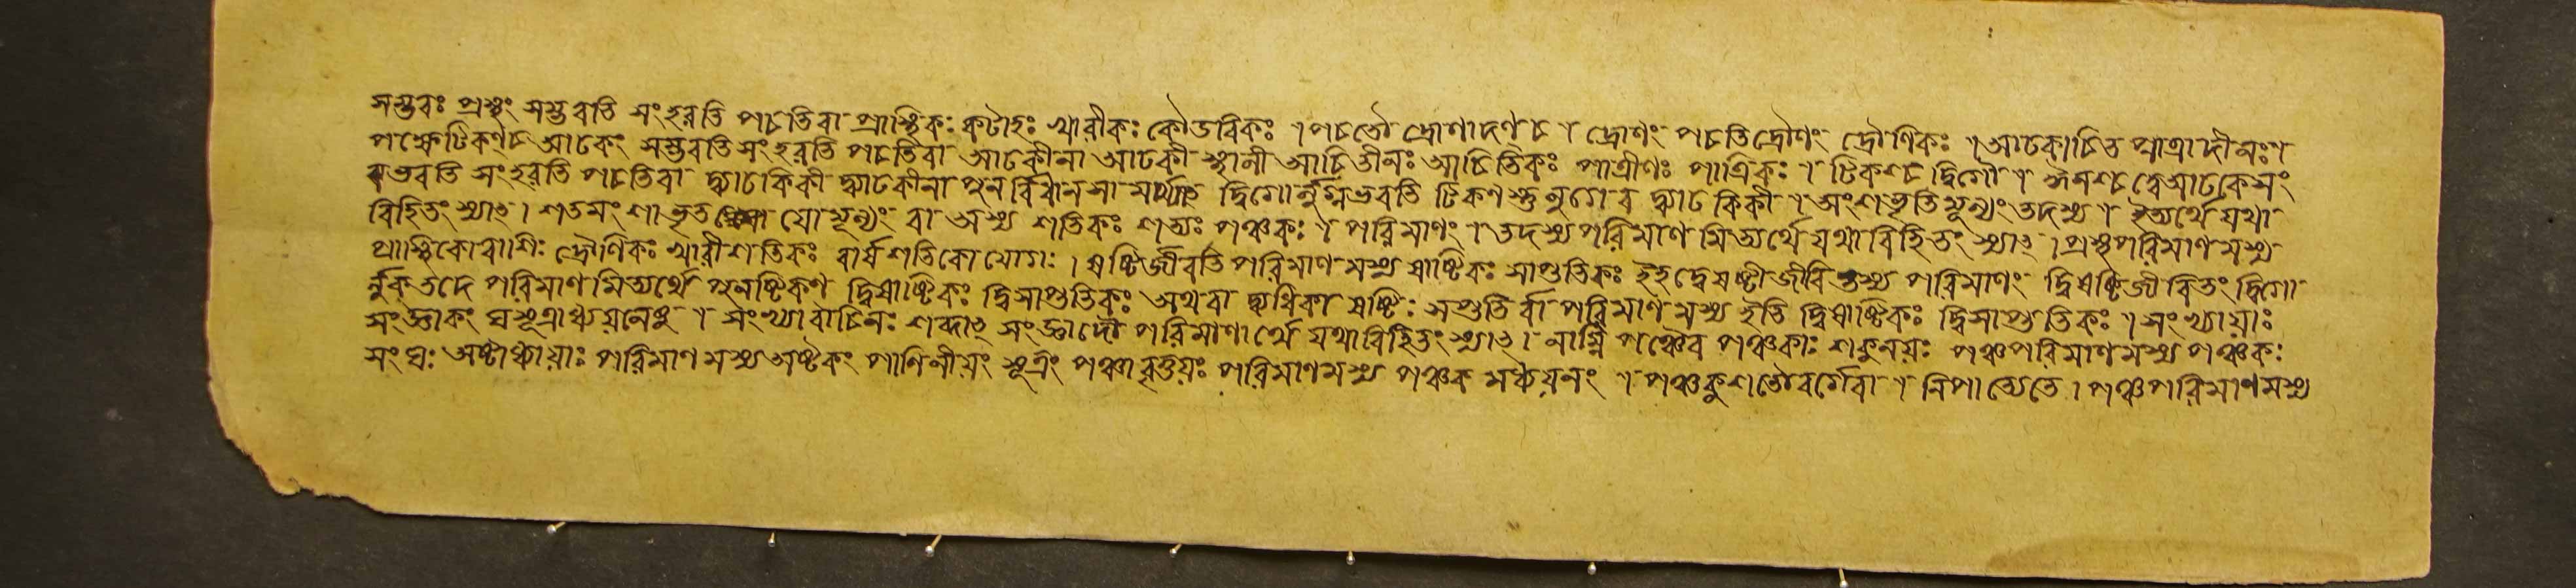 সম্ভবঃ প্রস্থং সম্ভবতি সংহরতি পচতিবা প্রাস্থিকঃ কটাহঃ খারীকঃ কৌডবিকঃ । পচতৌ দ্রোণাদণ্ চ । দ্রোণং পচতি দ্রৌণং দ্রৌণিকঃ । আঢকাচিত পাত্রাদীনঃ ।
পক্ষেটিকণ্ চ আঢকং সম্ভবতি সংহরতি পচতিবা আঢকীনা আঢকী স্থালী আচিতীনঃ আচিতিকঃ পাত্রীণঃ পাত্রিকঃ । টিকণ্চ দ্বিগৌ । ঈনণ্চ দ্বে আঢকে সং
ভবতি সংহরতি পচতিবা দ্ব্যাঢকিকী দ্ব্যাঢকীনা পুনর্বিধানসামর্থ্যাৎ দ্বিগোর্লুগ্নভবতি টিকণস্তু লুগেব দ্ব্যাঢকিকী । অংশভৃতিমূল্যং তদস্য । ইত্যর্থে যথা
বিহিতং স্যাৎ । শতমংশা ভৃত যো মূল্যং বা অস্য শতিকঃ শত্যঃ পঞ্চকঃ । পরিমাণং । তদস্য পরিমাণমিত্যর্থে যথা বিহিতং স্যাৎ । প্রস্থপরিমাণমস্য
প্রাস্থিকোরাশিঃ দ্রৌণিকঃ খারীশতিকঃ বার্ষশতিকো যোগঃ । ষষ্টির্জীবতি পরিমাণমস্য ষাষ্টিকঃ সাপ্ততিকঃ ইহদ্বেষষ্টী জীবিতস্য পরিমাণং দ্বিষষ্টিজীবিতং দ্বিগো
র্লুক্ তদে পরিমাণমিত্যর্থে পুনষ্টিকণ্ দ্বিষাষ্টিকঃ দ্বিসাপ্ততিকঃ অথবা দ্ব্যধিকা ষষ্টিঃ সপ্ততির্বা পরিমাণমস্য ইতি দ্বিষাষ্টিকঃ দ্বিসাপ্ততিকঃ । সংখ্যায়াঃ
সংজ্ঞাকং ঘসূত্রাধ্যয়নেষু । সংখ্যাবাচিনঃ শব্দাৎ সংজ্ঞাদৌ পরিমাণার্থে যথাবিহিতং স্যাৎ । নাম্নি পঞ্চৈব পঞ্চকাঃ শকুনয়ঃ পঞ্চপরিমাণমস্য পঞ্চকঃ
সংঘঃ অষ্টাধ্যায়াঃ পরিমাণমস্য অষ্টকং পাণিনীয়ং সূত্রং পঞ্চাবৃত্তয়ঃ পরিমাণমস্য পঞ্চকমধ্যয়নং । পঞ্চদ্দশতৌবর্গেবা । নিপাত্যেতে । পঞ্চপরিমাণমস্য